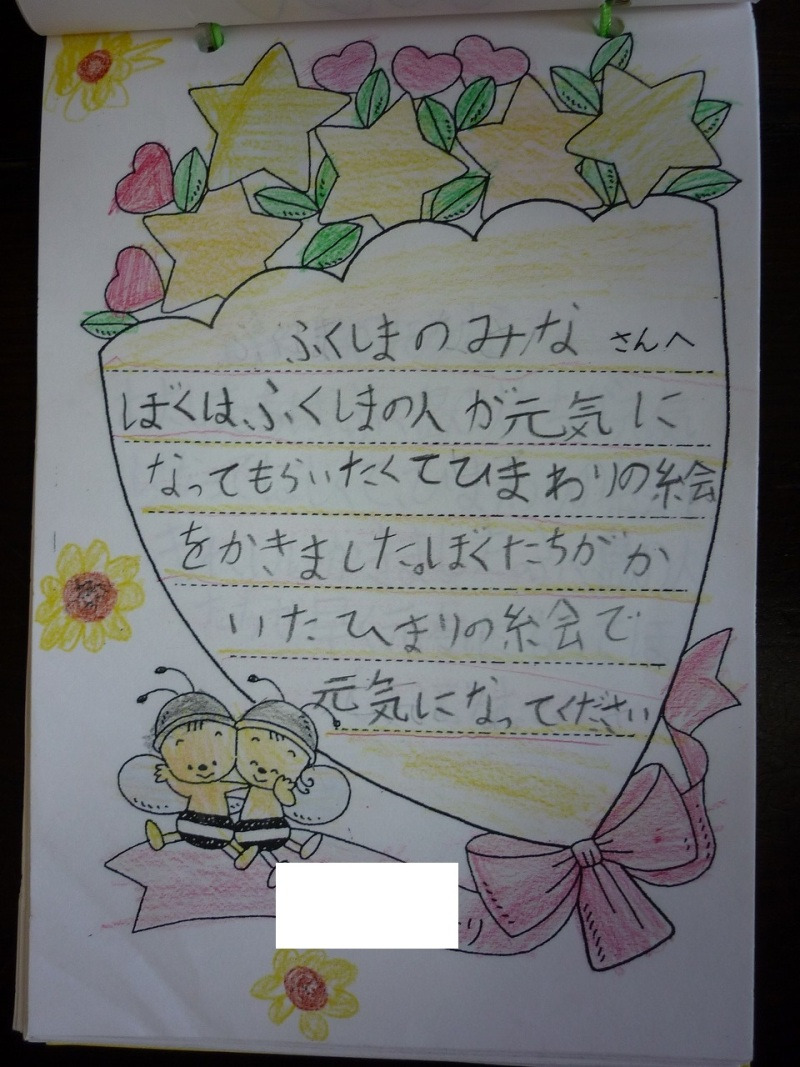 ふくしまのみなさんへ
ぼくは、ふくしまの人が元気に
なってもらいたくてひまわりの絵
をかきました。ぼくたちがか
いたひまりの絵で
元気になってください
り